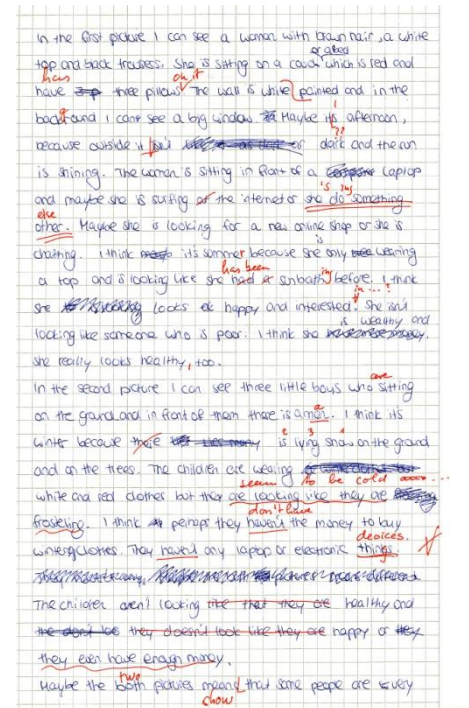 In the first picture I can see a woman with brown hair, a white
or a bed
top and back trousers. She is sitting on a couch which is red and
has on it
have three pillows. The wall is white painted and in the
background I cant see a big window. Maybe its afternoon,
because outside it isn't dark and the sun
is shining. The woman is sitting in front of a laptop
and maybe she is surfing the internet or she do something
's ing
else
other. Maybe she is looking for a new online shop or she is
chatting. I think it's summer because she only wearing
is
has been
a top and is looking like she had sunbath before. I think
ing
in ... ?
she looks happy and interested. She isn't
is wealthy and
looking like someone who is poor. I think she
she really looks healthy, too.
are
In the second picture I can see three little boys who sitting
on the ground and in front of them there is a man. I think its
2 3 1
winter because there is lying snow on the ground
and on the trees. The children are wearing
seem to be cold
white and red clothes but they are looking like they are
don't have
frosteling. I think perhaps they haven't the money to buy
devices.
winterclothes. They haven't any laptop or electronic things.
The children aren't looking like that they are healthy and
the don't they doesn't look like they are happy or
they even have enough money.
two
Maybe the both pictures mean that some people are very
show